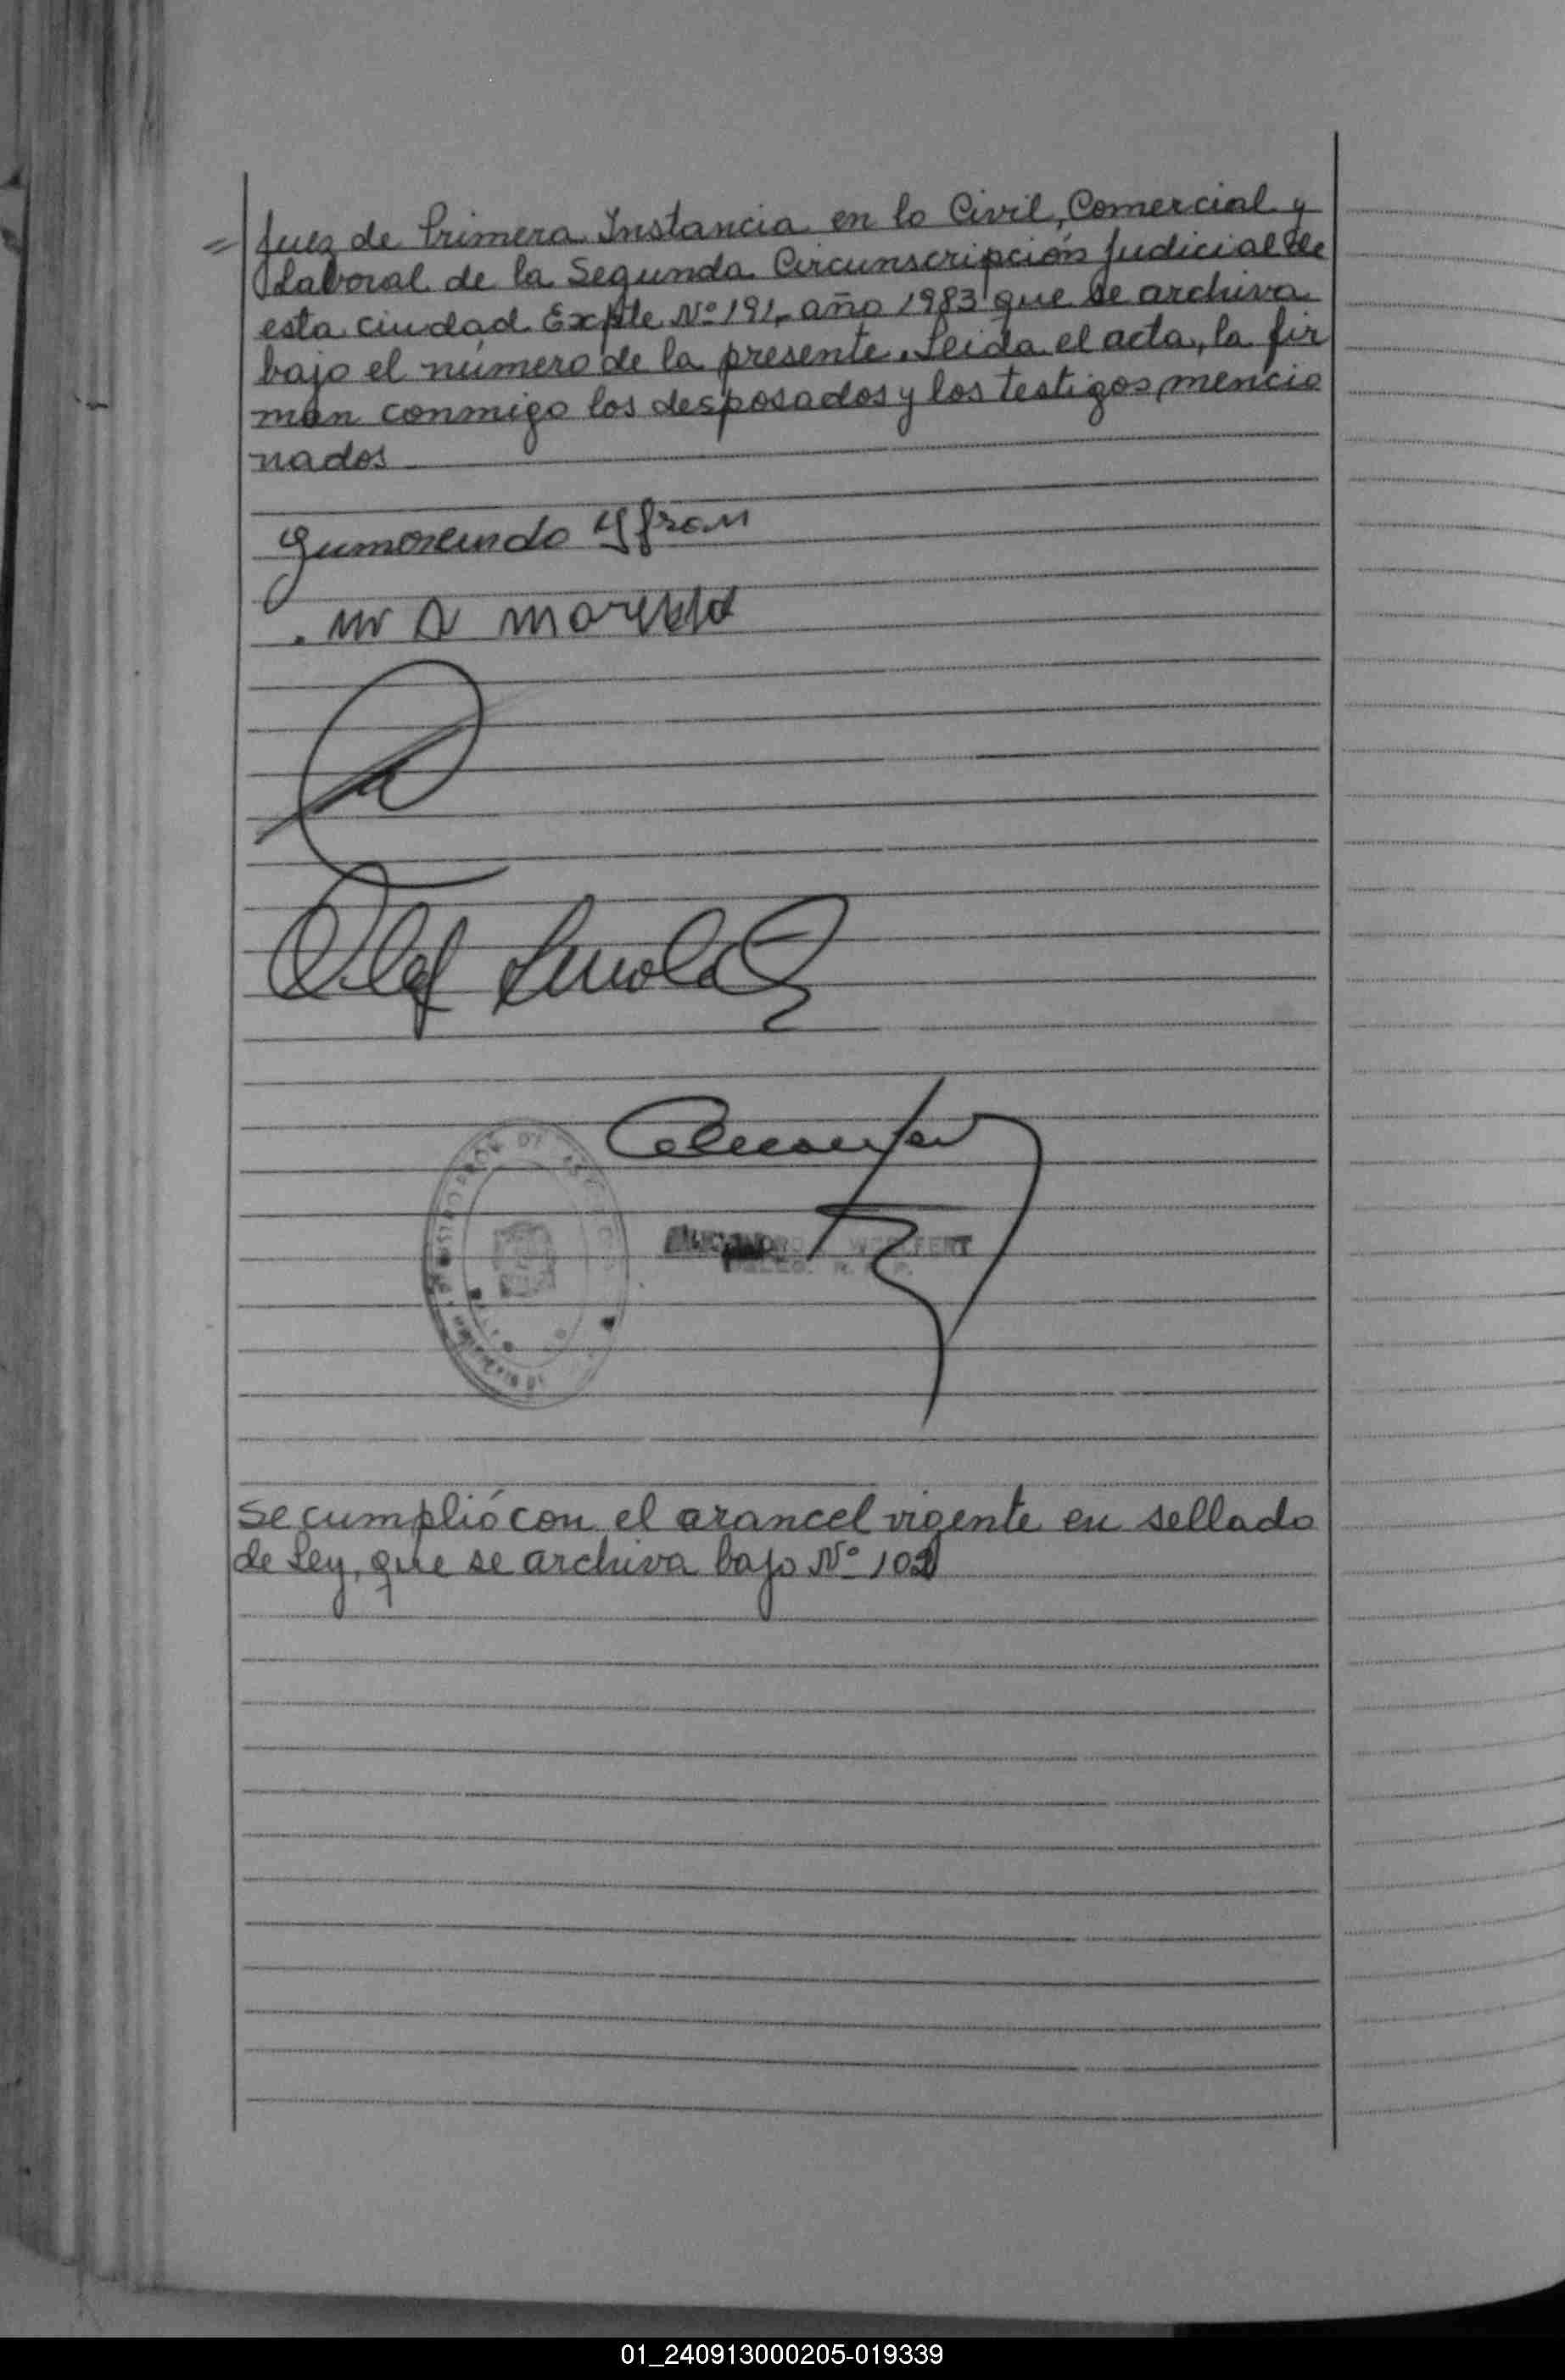 = Juez de Primera Instancia en lo Civil, Comercial y
Laboral de la Segunda Circunscripción Judicial de
esta ciudad Expte Nº 191, año 1983 que se archiva
bajo el número de la presente. Leida el acta, la fir
man conmigo los desposados y los testigos, mencio
nados
Gumersindo Yfran
se cumplió con el arancel vigente en sellado
de Ley, que se archiva bajo Nº 102
01_240913000205-019339